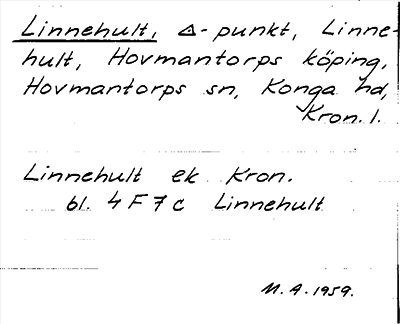 Linnehult, Δ-punkt, Linne-
hult, Hovmantorps köping,
Hovmantorps sn, Konga hd,
Kron. l.
Linnehult ek Kron.
bl. 4 F 7 c Linnehult
M. A. 1959.